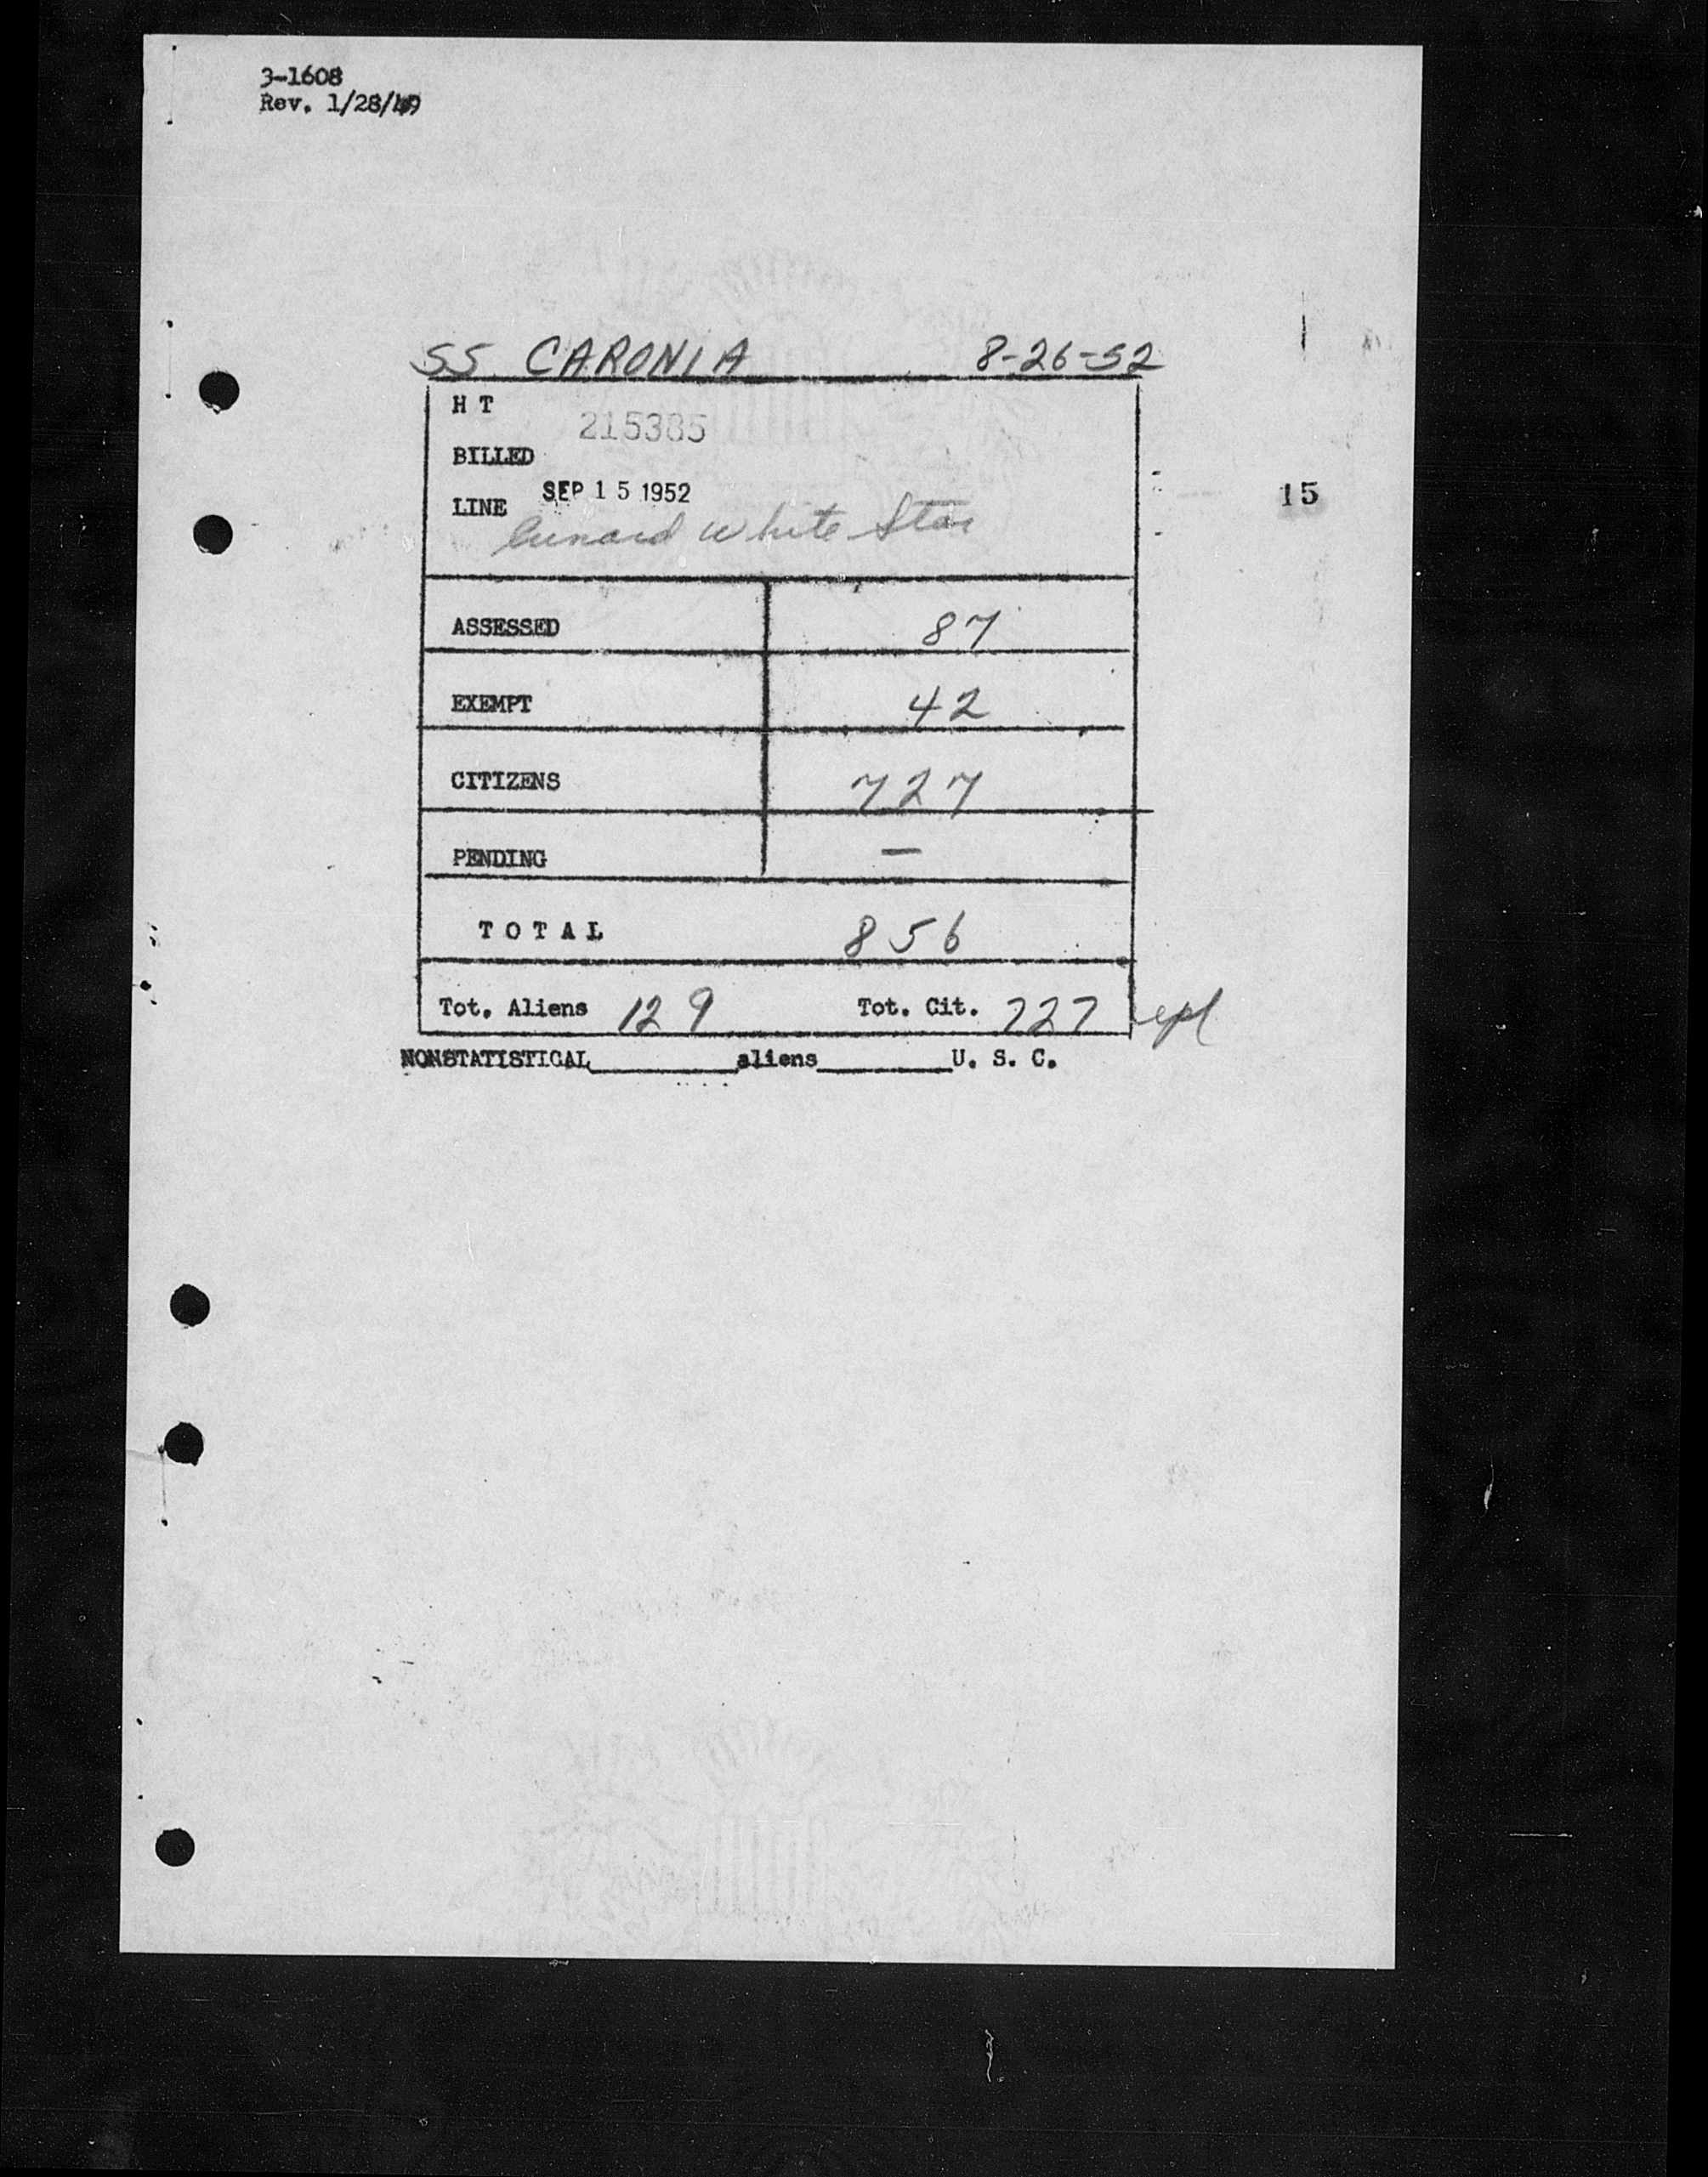 3-1608
Rev. 1/28/49
SS CARONIA 8-26-52
H T 215385
BILLED
SEP 15 1952
LINE Cunard White Star
15
ASSESSED 87
EXEMPT 42
CITIZENS 727
PENDING —
TOTAL 856
Tot. Aliens 129 Tot. Cit. 727
NONSTATISTICAL________aliens________U. S. C.